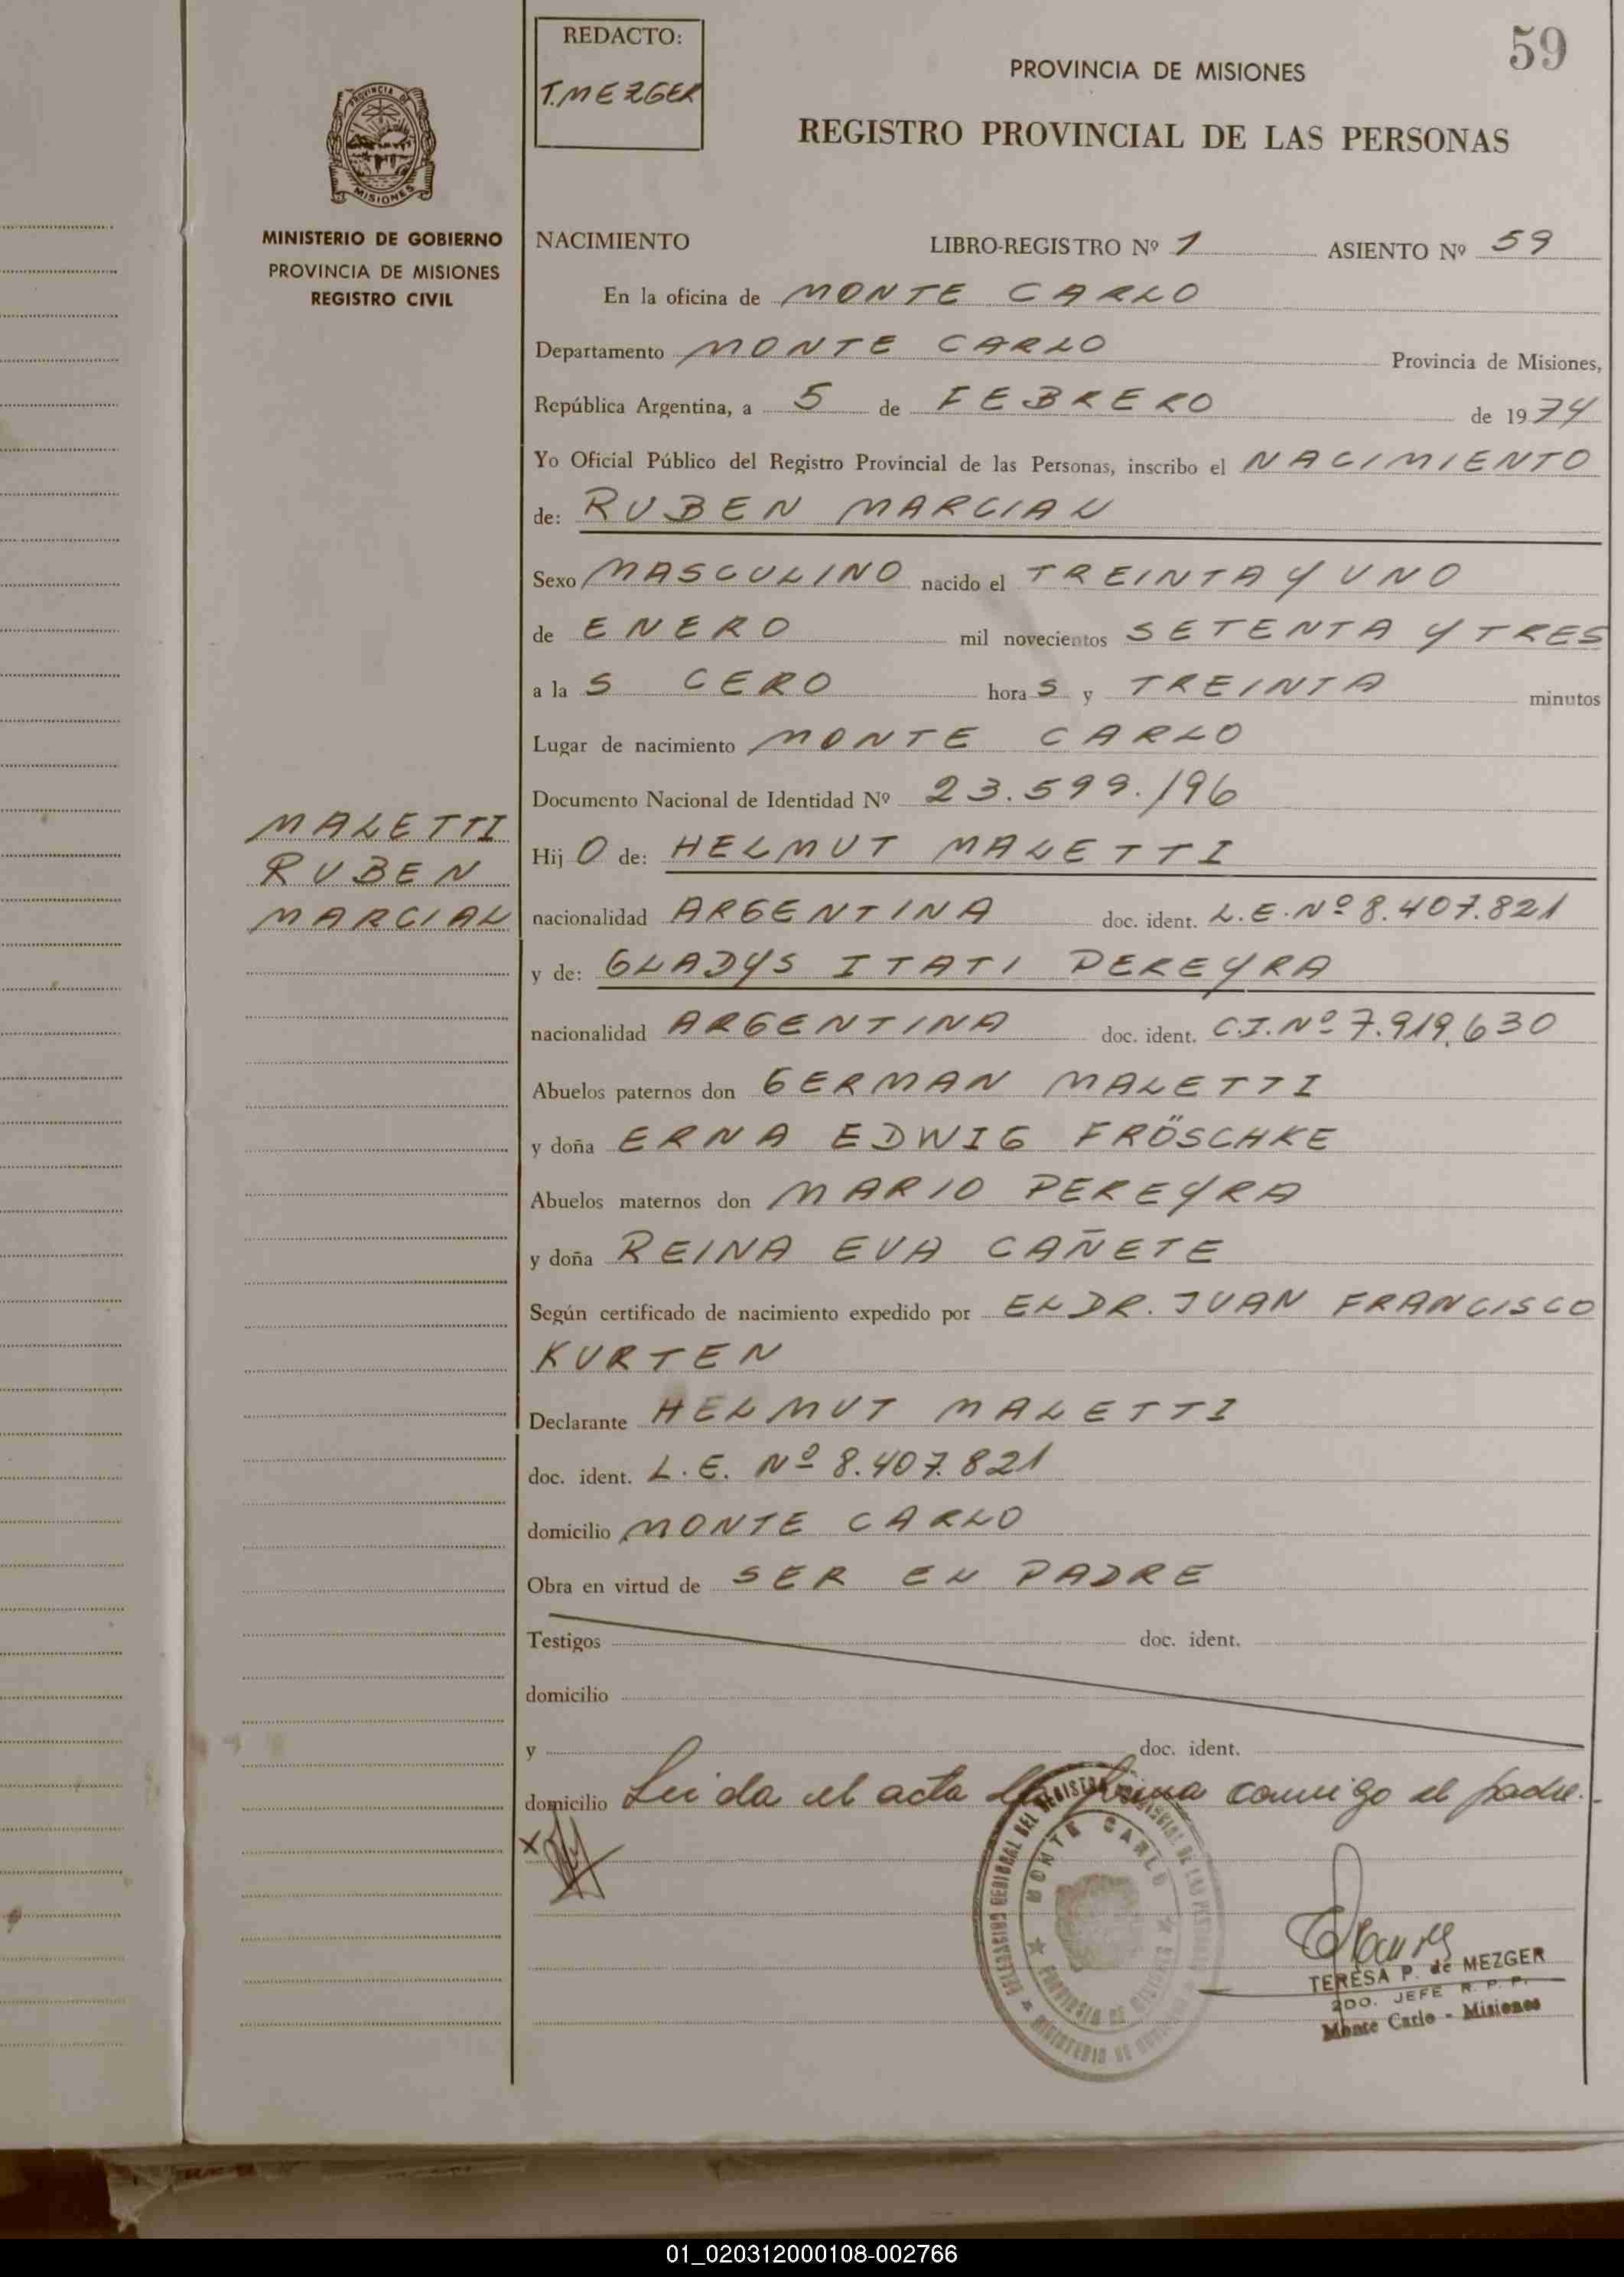 59
REDACTO:
T. MEZGER
PROVINCIA DE MISIONES
REGISTRO PROVINCIAL DE LAS PERSONAS
PROVINCIA DE
MISIONES
MINISTERIO DE GOBIERNO
PROVINCIA DE MISIONES
REGISTRO CIVIL
NACIMIENTO LIBRO-REGISTRO Nº 1 ASIENTO Nº 59
En la oficina de MONTE CARLO
Departamento MONTE CARLO Provincia de Misiones,
República Argentina, a 5 de FEBRERO de 1974
Yo Oficial Público del Registro Provincial de las Personas, inscribo el NACIMIENTO
de: RUBEN MARCIAL
Sexo MASCULINO nacido el TREINTA Y UNO
de ENERO mil novecientos SETENTA Y TRES
a la S CERO hora S y TREINTA minutos
Lugar de nacimiento MONTE CARLO
Documento Nacional de Identidad Nº 23.599.196
MALETTI
RUBEN
MARCIAL
Hij O de: HELMUT MALETTI
nacionalidad ARGENTINA doc. ident. L.E.Nº 8.407.821
y de: GLADYS ITATI PEREYRA
nacionalidad ARGENTINA doc. ident. C.I.Nº 7.919.630
Abuelos paternos don GERMAN MALETTI
y doña ERNA EDWIG FRÖSCHKE
Abuelos maternos don MARIO PEREYRA
y doña REINA EVA CAÑETE
Según certificado de nacimiento expedido por EL DR. JUAN FRANCISCO
KURTEN
Declarante HELMUT MALETTI
doc. ident. L.E. Nº 8.407.821
domicilio MONTE CARLO
Obra en virtud de SER EL PADRE
Testigos doc. ident.
domicilio
y doc. ident.
domicilio Leida el acta la firma conmigo el padre.-
X
MONTE CARLO
TERESA P. de MEZGER
2DO. JEFE R. P. P.
Monte Carlo - Misiones
01_020312000108-002766